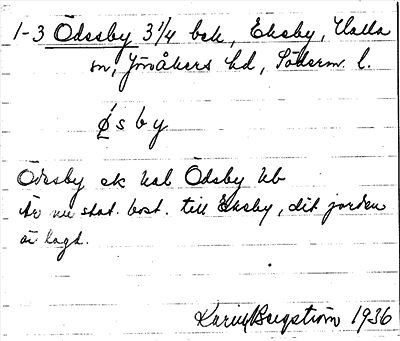 1-3 Ödesby 3 1/4 bek, Eksby, Halla
sn, Jönåkers hd, Söderm. l.
ǿsby
Ödesby ek hab Ödsby hb
Är nu stat. bost. till Eksby, dit jorden
är lagd.
Karin Bergström 1936